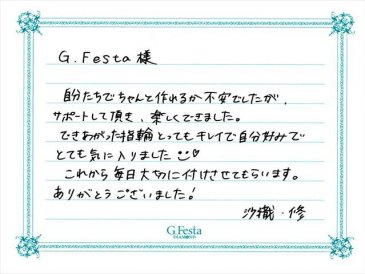 G.Festa様
自分たちでちゃんと作れるか不安でしたが、
サポートして頂き、楽しくできました。
できあがった指輪とってもキレイで自分好みで
とても気に入りました
これから毎日大切に付けさせてもらいます。
ありがとうございました!
沙織・修
G.Festa
DIAMOND